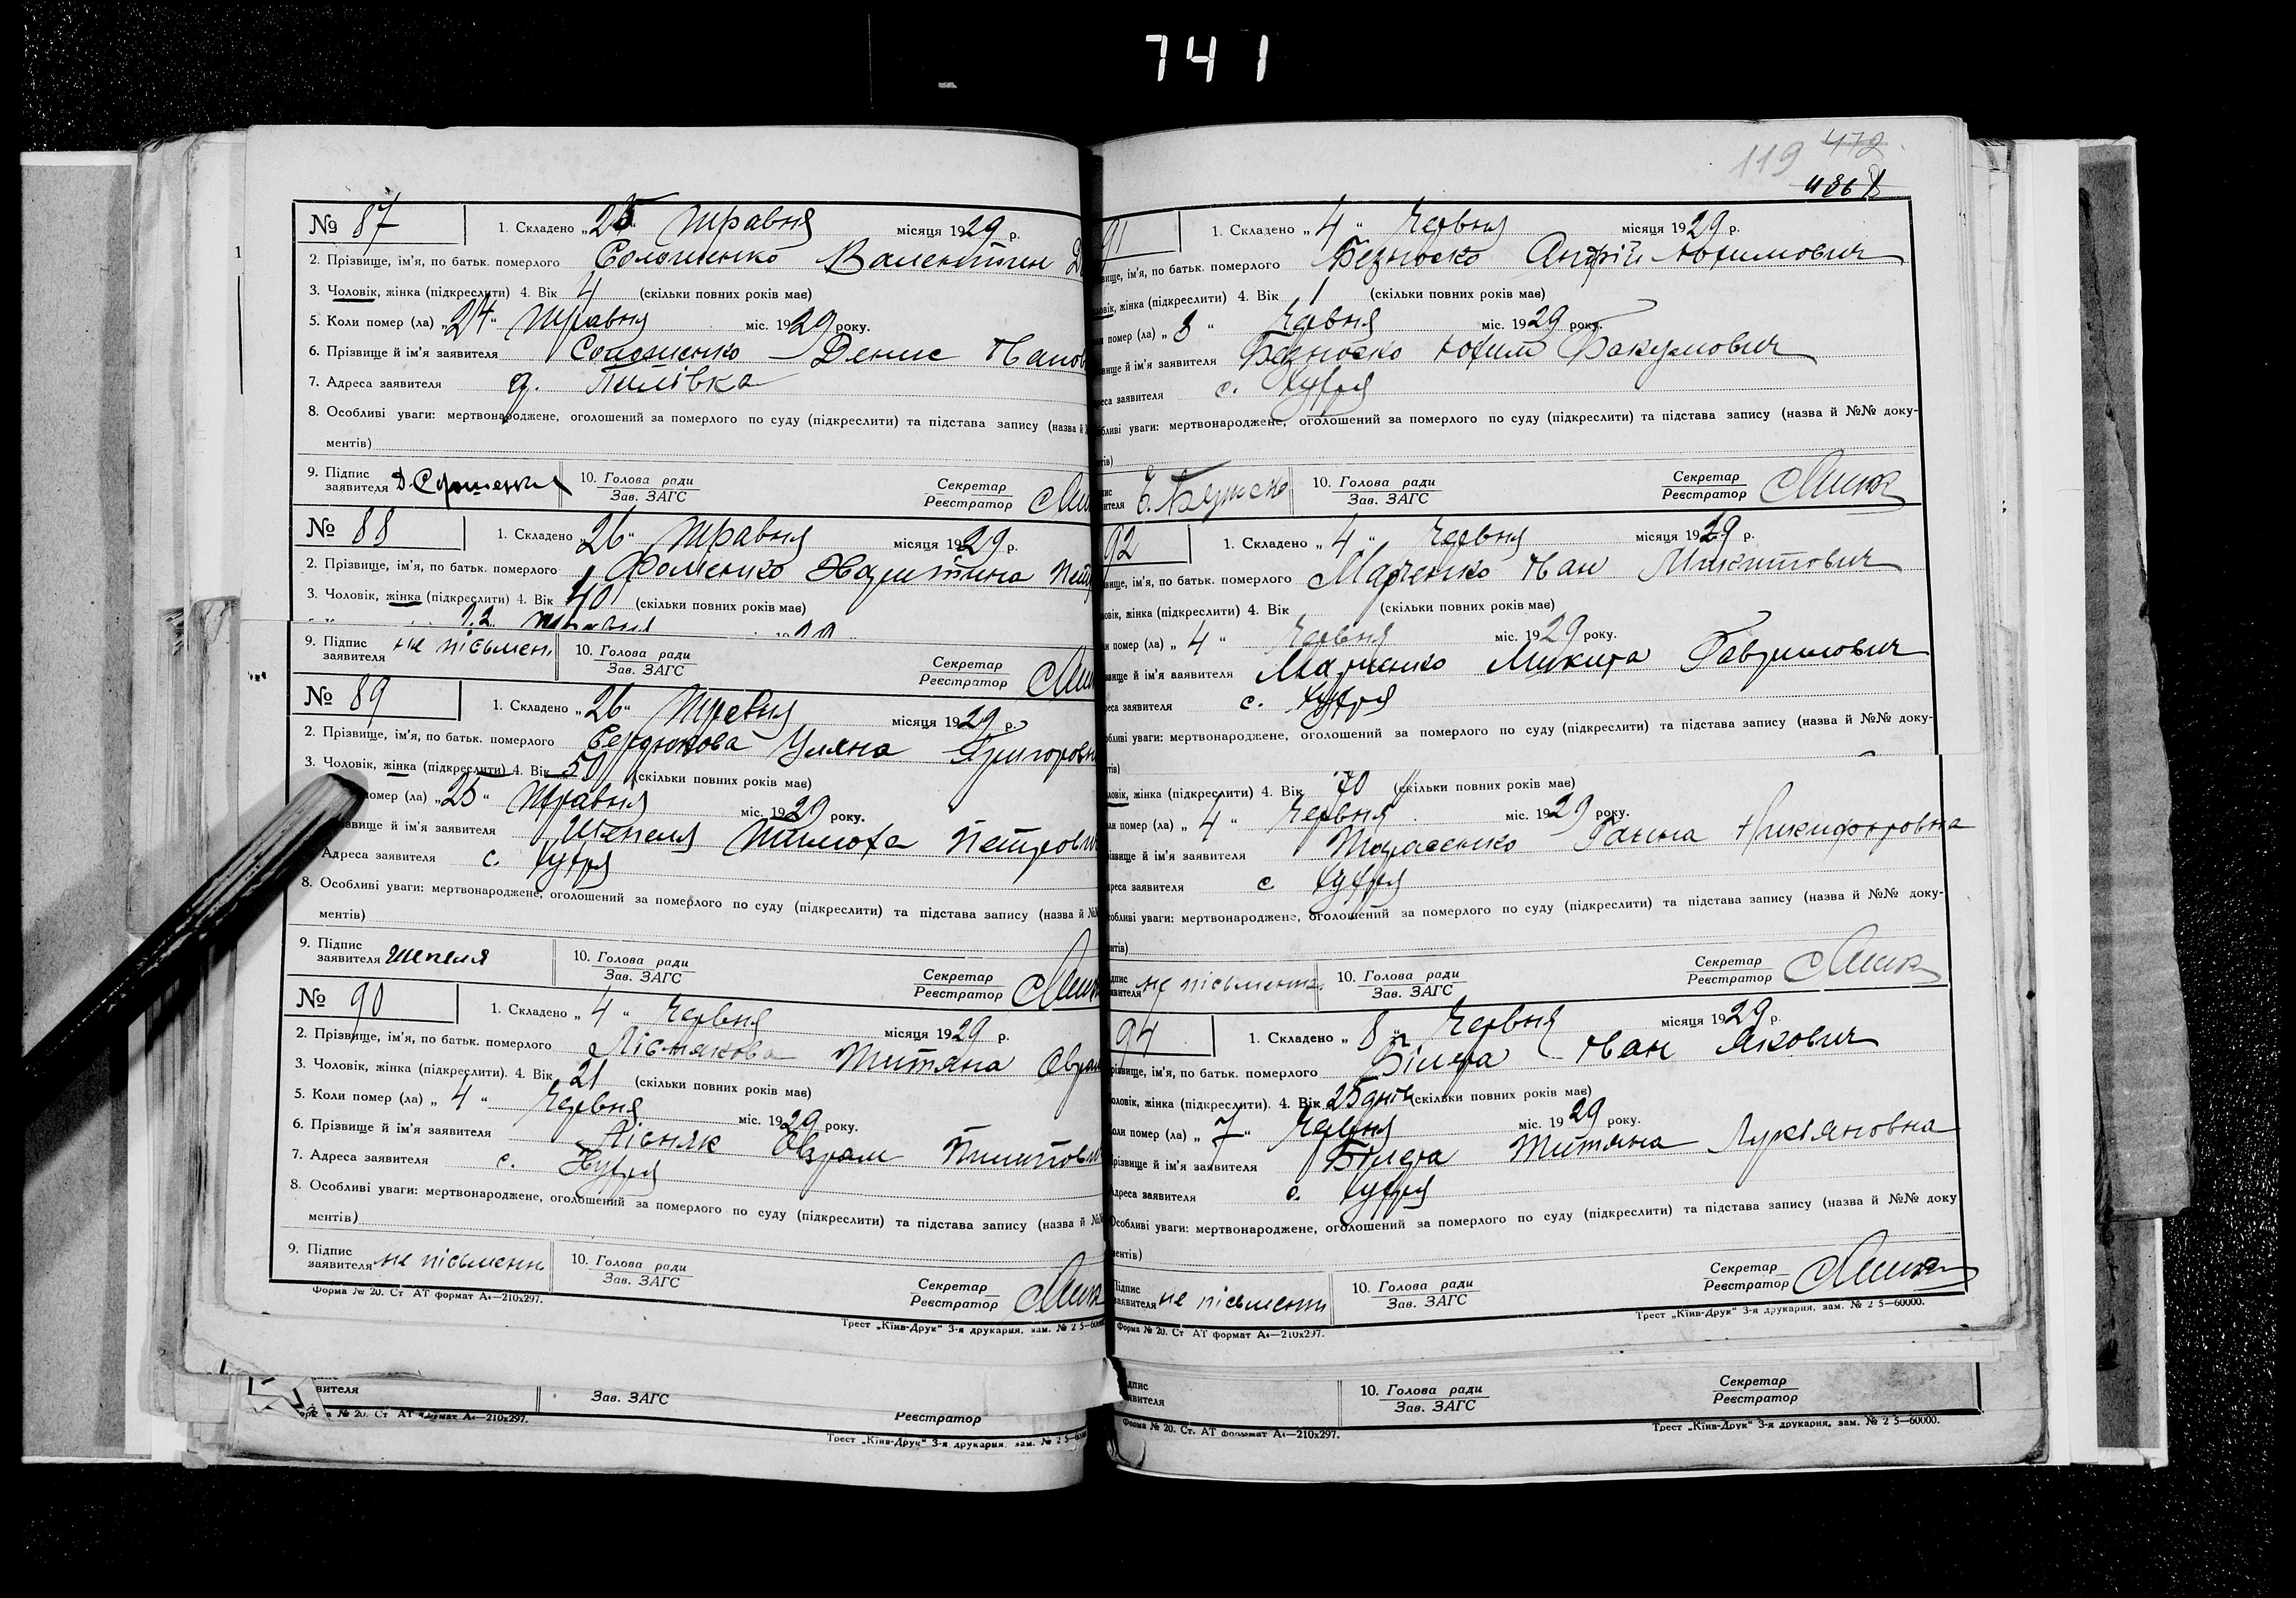 741
№ 87 1. Складено „25“ травня місяця 1929 р.
2. Прізвище, ім'я, по батьк. померлого Солошенко Валентин Д
3. Чоловік, жінка (підкреслити) 4. Вік 4 (скільки повних років має)
5. Коли помер (ла) „24“ травня міс. 1929 року.
6. Прізвище й ім'я заявителя Солошенко Денис Іванов
7. Адреса заявителя
8. Особливі уваги: мертвонароджене, оголошений за померлого по суду (підкреслити) та підстава запису (назва й
ментів)
9. Підпис заявителя 10. Голова ради Зав. ЗАГС Секретар Реєстратор
№ 88 1. Складено „26“ травня місяця 1929 р.
2. Прізвище, ім'я, по батьк. померлого Фоменко
3. Чоловік, жінка (підкреслити) 4. Вік 40 (скільки повних років має)
22 травня
9. Підпис заявителя не пісьмен 10. Голова ради Зав. ЗАГС Секретар Реєстратор
№ 89 1. Складено „26“ травня місяця 1929 р.
2. Прізвище, ім'я, по батьк. померлого Сердюкова Уляна Григоровн
3. Чоловік, жінка (підкреслити) 4. Вік 50 (скільки повних років має)
омер (ла) „25“ травня міс. 1929 року.
звище й ім'я заявителя Шепеля Тимоха Петрови
Адреса заявителя с. Хухря
8. Особливі уваги: мертвонароджене, оголошений за померлого по суду (підкреслити) та підстава запису (назва й №
ментів)
9. Підпис заявителя Шепеля 10. Голова ради Зав. ЗАГС Секретар Реєстратор
№ 90 1. Складено „4“ Червня місяця 1929 р.
2. Прізвище, ім'я, по батьк. померлого Ліснякова Титяна Оврам
3. Чоловік, жінка (підкреслити). 4. Вік 21 (скільки повних років має)
5. Коли помер (ла) „4“ Червня міс. 1929 року.
6. Прізвище й ім'я заявителя Лісняк Оврам Пилипов
7. Адреса заявителя с. Хухря
8. Особливі уваги: мертвонароджене, оголошений за померлого по суду (підкреслити) та підстава запису (назва й №
ментів)
9. Підпис заявителя не пісьменн 10. Голова ради Зав. ЗАГС Секретар Реєстратор
Форма № 20. Ст АТ формат А4—210х297.
Трест „Київ-Друк“ 3-я друкарня, зам. № 2 5—60000
вителя Зав. ЗАГС Реєстратор
№ 20. Ст АТ формат А4—210х297.
Трест „Київ-Друк“ 3-я друкарня, зам. № 2 5—
119 472
91 1. Складено „4“ Червня місяця 1929 р.
вище, ім'я, по батьк. померлого Безноско Андрій Юхимович
ловік, жінка (підкреслити) 4. Вік 1 (скільки повних років має)
помер (ла) „3“ Червня міс. 1929 року.
вище й ім'я заявителя Безноско Юхим
реса заявителя с. Хухря
бливі уваги: мертвонароджене, оголошений за померлого по суду (підкреслити) та підстава запису (назва й №№ доку-
нтів)
10. Голова ради Зав. ЗАГС Секретар Реєстратор
92 1. Складено „4“ Червня місяця 1929 р.
вище, ім'я, по батьк. померлого Марченко Іван Микитович
ловік, жінка (підкреслити) 4. Вік (скільки повних років має)
помер (ла) „4“ Червня міс. 1929 року.
звище й ім'я заявителя Марченко Микита Гаврилович
реса заявителя с. Хухря
обливі уваги: мертвонароджене, оголошений за померлого по суду (підкреслити) та підстава запису (назва й №№ доку-
нтів)
ловік, жінка (підкреслити) 4. Вік 70 (скільки повних років має)
ли помер (ла) „4“ Червня міс. 1929 року.
ізвище й ім'я заявителя Тарасенко Ганна Никифоровна
реса заявителя с Хухря
собливі уваги: мертвонароджене, оголошений за померлого по суду (підкреслити) та підстава запису (назва й №№ доку-
ентів)
не пісьменна 10. Голова ради Зав. ЗАГС Секретар Реєстратор
94 1. Складено „8“ Червня місяця 1929 р.
різвище, ім'я, по батьк. померлого Білера Іван Якович
оловік, жінка (підкреслити). 4. Вік 25 днів (скільки повних років має)
оли помер (ла) „7“ Червня міс. 1929 року.
різвище й ім'я заявителя Білера Титяна Лукіяновна
Адреса заявителя с. Хухря
Особливі уваги: мертвонароджене, оголошений за померлого по суду (підкреслити) та підстава запису (назва й №№ доку
ментів)
Підпис заявителя не пісьменн 10. Голова ради Зав. ЗАГС Секретар Реєстратор
Форма № 20. Ст АТ формат А4—210х297.
Трест „Київ-Друк“ 3-я друкарня, зам. № 2 5—60000.
10. Голова ради Зав. ЗАГС Секретар Реєстратор
Форма № 20. Ст. АТ формат А4—210х297.
Трест „Київ-Друк“ 3-я друкарня, зам. № 2 5—60000.